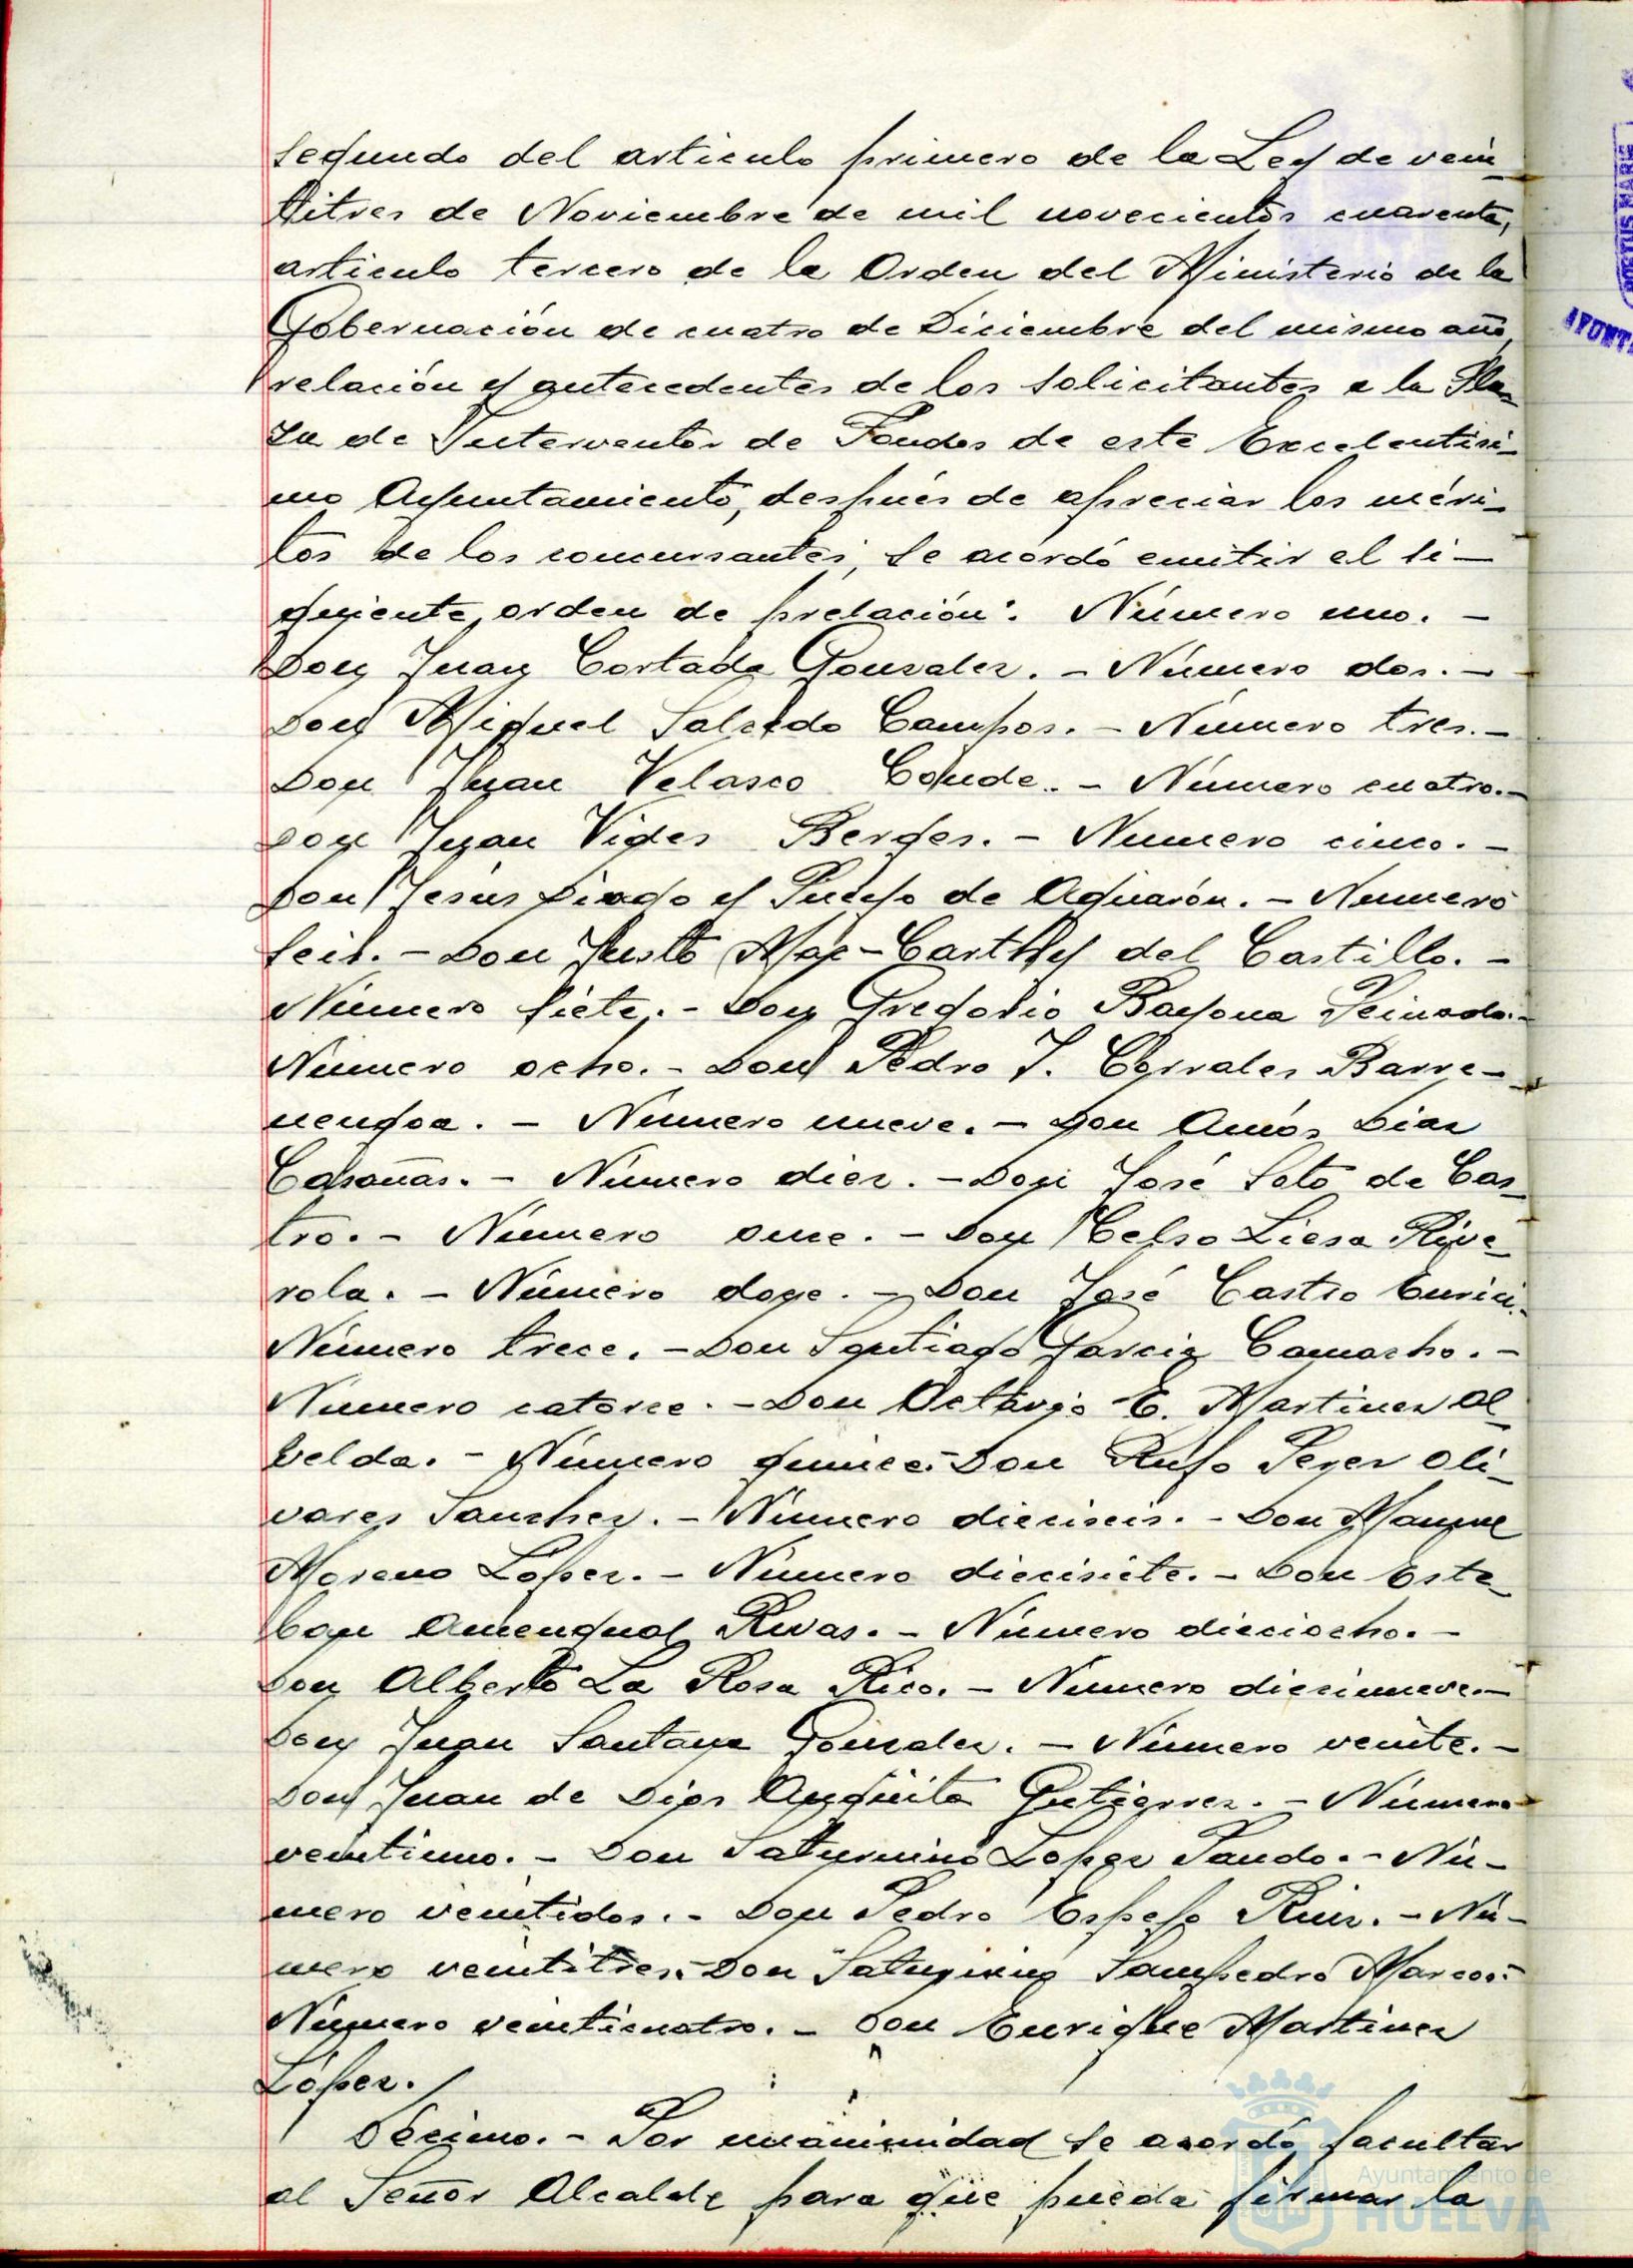 segundo del articulo primero de la Ley de vein-
titres de Noviembre de mil novecientos cuarenta,
articulo tercero de la Orden del Ministerio de la
Gobernación de cuatro de Diciembre del mismo año,
relación y antecedentes de los solicitantes a la Pla-
za de Interventor de Fondos de este Excelentisi-
mo Ayuntamiento, después de apreciar los méri-
tos de los concursantes, se acordó emitir el si-
guiente orden de prelación: Número uno. -
Don Juan Cortada Gonzalez. - Número dos. -
Don Miguel Salcedo Campos. - Número tres. -
Don Juan Velasco Conde. - Número cuatro. -
Don Juan Vides Berges. - Numero cinco. -
Don Jesús y Pueyo de Aguarón. - Numero
seis. - Don Justo Mac-Carthy del Castillo. -
Número siete. - Don Gregorio Bayona Peinado. -
Número ocho. - Don Pedro J. Corrales Barre-
nengoa. - Número nueve. - Don Amós Diaz
Casañas. - Número diez. - Don José Soto de Cas-
tro. - Número once. - Don Celso Liesa Rive-
rola. - Número doce. - Don José Castro
Número trece. - Don Santiago Garcia Camacho. -
Número catorce. - Don Octavio E. Martinez Al-
belda. - Número quince. - Don Rufo Perez Oli-
vares Sanchez. - Número dieciseis. - Don Manuel
Moreno López. - Número diecisiete. - Don Este-
ban Amengual Rivas. - Número dieciocho. -
Don Alberto La Rosa Rico. - Número diecinueve. -
Don Juan Santana Gonzalez. - Número veinte. -
Don Juan de Dios Anguita Gutierrez. - Número
veintiuno. - Don Saturnino Lopez Pando. - Nú-
mero veintidos. - Don Pedro Espejo Ruiz. - Nú-
mero veintitres. - Don Saturnino Sampedro Marcos. -
Número veinticuatro. - Don Enrique Martinez
López.
Décimo. - Por unanimidad se acordó facultar
al Señor Alcalde para que pueda firmar la
PORTUS MARIS
AYUNT
Ayuntamiento de
HUELVA